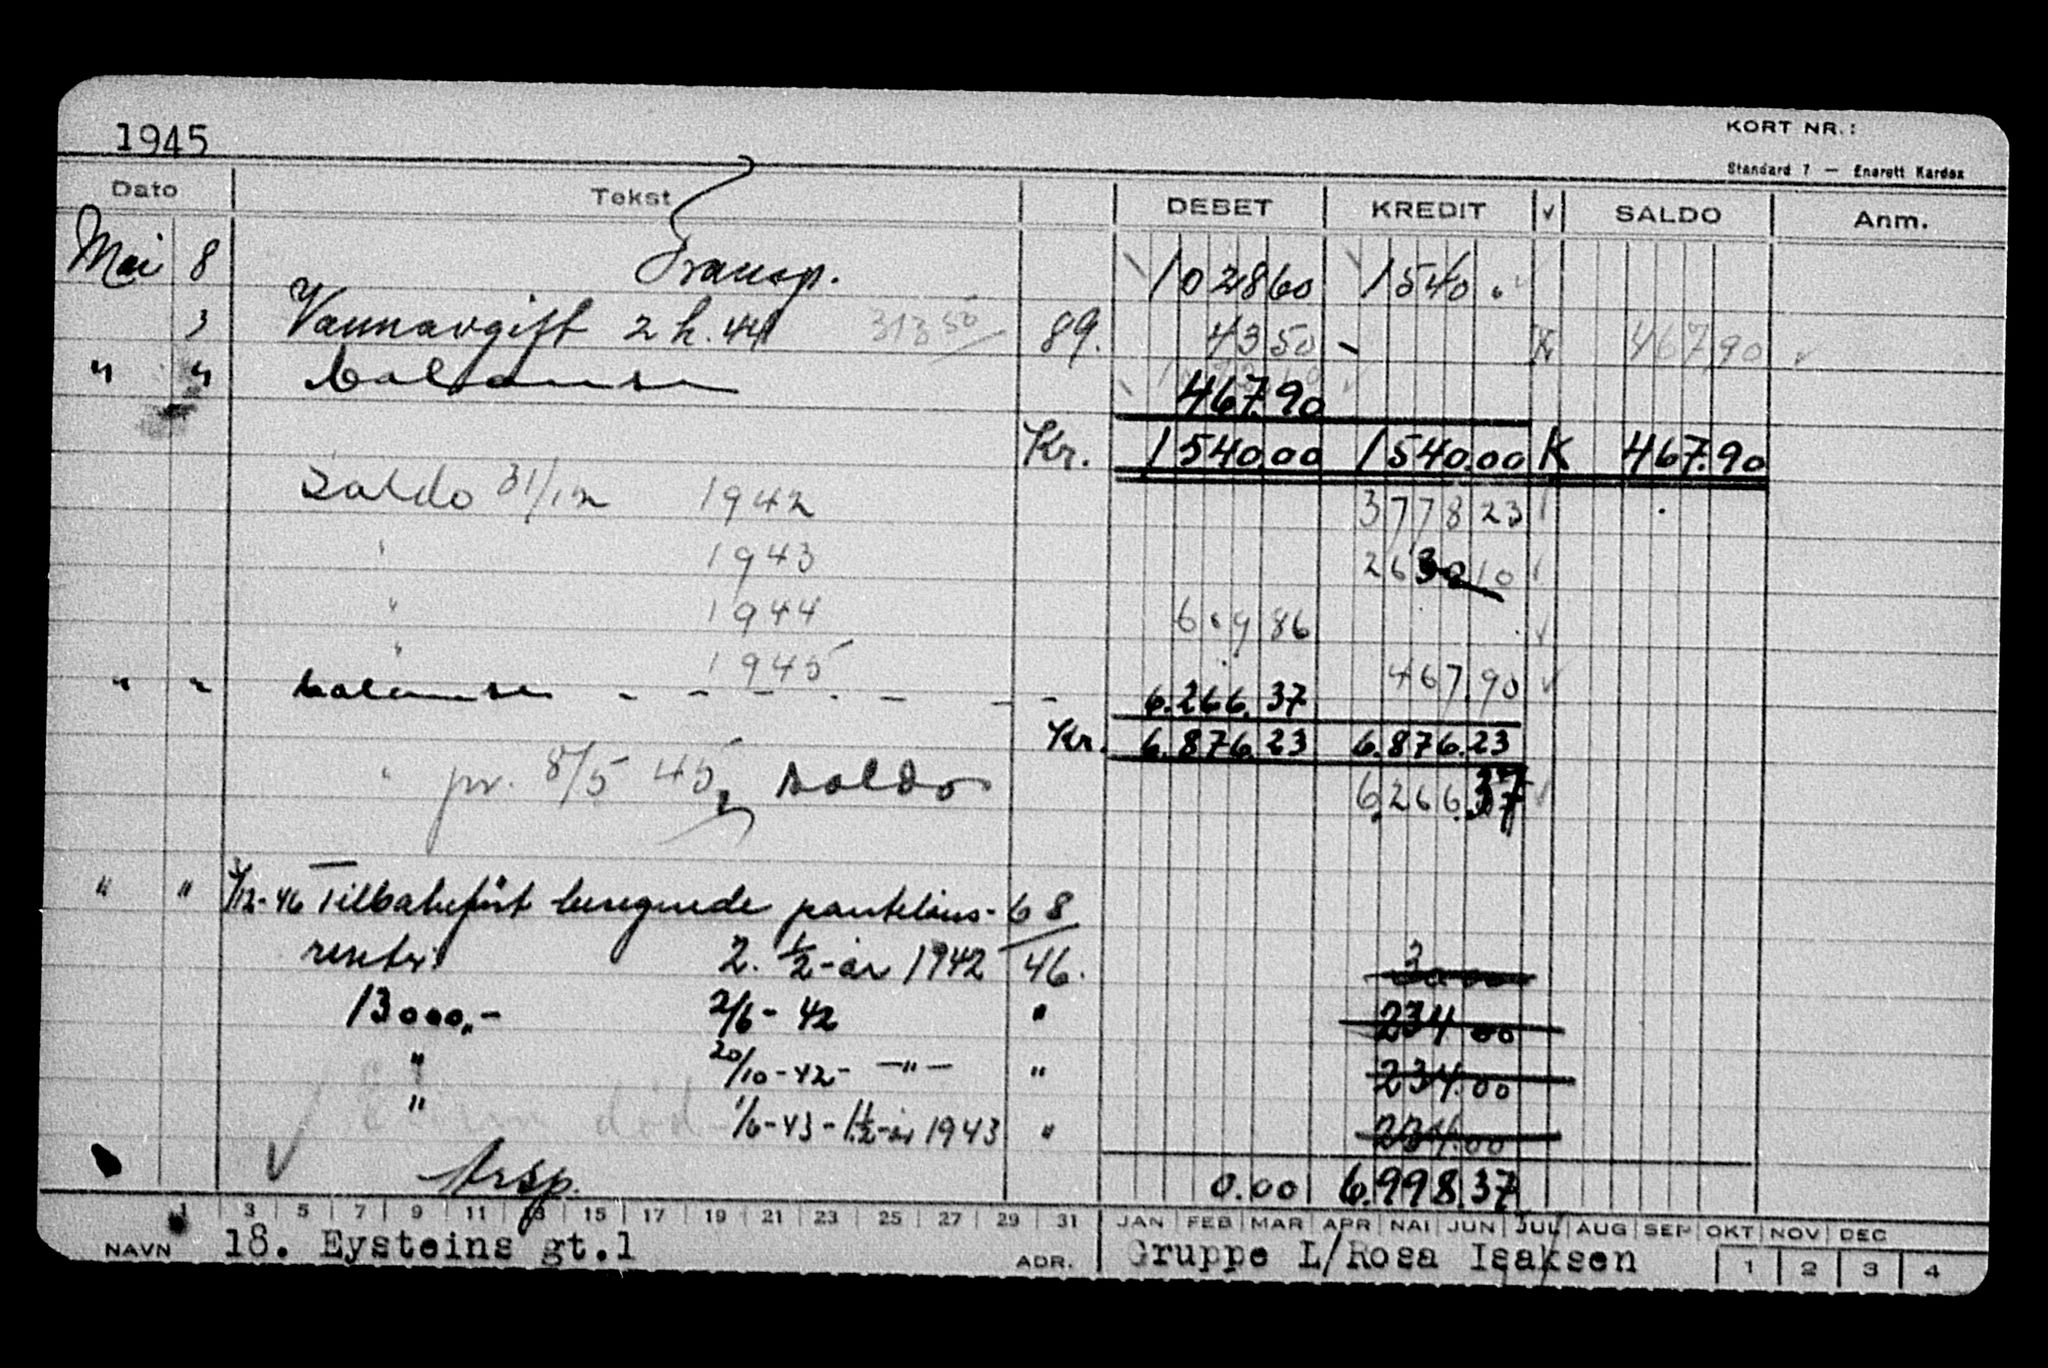 1945
KORT NR.:
Standard 7 — Enerett Kardex
Dato Tekst DEBET KREDIT √ SALDO Anm.
Mai 8 Transp. 102860 1540.
3 Vannavgift 2 h. 44 313 50 89. 43 50 - K 467,90 √
" " balanse 467.90
Kr. 1540.00 1540.00 K 467.90
Saldo 31/12 1942 3778 23
" 1943 2630 10
" 1944 6 . 9 86 √
" 1945 467.90 √
" " balanse - - - - - - - 6.266.37
Kr. 6.876.23 6.876.23
" pr. 8/5 45, saldo 6.266.37 √
" " 3/12-46 Tilbakeført beregnede pantelåns- 68
renter 2. ½-år 1942 46. 30 00
13000,- 2/6 - 42 " 234 00
" 20/10-42- —"— " 234.00
" 1/6-43-1.½-år 1943 " 234.00
√ død
trsp. 0.00 6.998.37
1 3 5 7 9 11 13 15 17 19 21 23 25 27 29 31 JAN FEB MAR APR MAI JUN JUL AUG SEP OKT NOV DEC
NAVN 18. Eysteins gt.1 ADR. Gruppe L/Rosa Isaksen 1 2 3 4